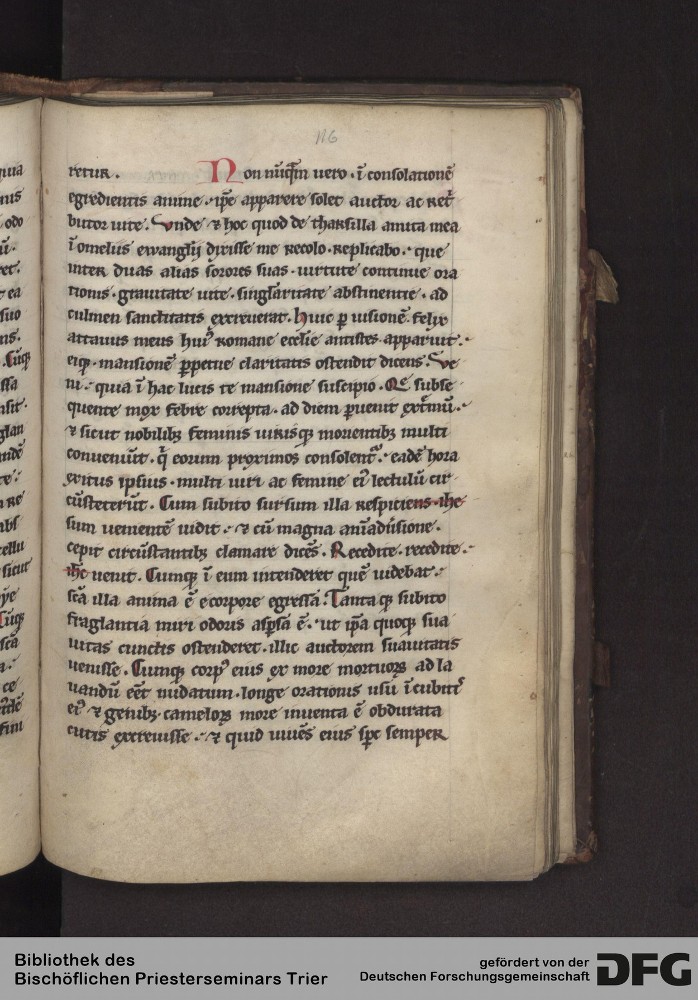 116
retur. Non nūq̄m uero. ī consolationē
egredientis anime. ip̄e apparere solet auctor ac ret͛
butor uite. Vnde ⁊ hoc quod de tharsilla amita mea
ī omeliis ewanglii dixisse me recolo. replicabo. que
inter duas alias sorores suas. uirtute continue ora
tionis. grauitate uite. singlaritate abstinentie. ad
culmen sanctitatis excreuerat. Huic ꝑ uisionē felix
attauus meus huiꝰ romane eccl̄ie antistes apparuit.
eiq;. mansionē ꝑpetue claritatis ostendit dicens. Ve
ni. quia ī hac lucis te mansione suscipio. Q̄ subse
quente mox febre correpta. ad diem ꝑuenit ext͛mū.
⁊ sicut nobilib; feminis uirisq; morientib; multi
conueniūt. q̄ eorum proximos consolent᷑. eadē hora
exitus ipsius. multi uiri ac femine eiꝰ lectulū cir
cūsteterūt. Cum subito sursum illa respiciens ihe
sum uementē uidit. ⁊ cū magna anīaduisione.
cepit circūstantib; clamare dicēs. Recedite. recedite.
ih̄c uenit. Cumq; ī eum intenderet quē uidebat.
sc̄a illa anima ē e corpore egressa. Tanta q; subito
fraglantia miri odoris asp̄sa ē. ut ip̄a quoq; sua
uitas cunctis ostenderet. illic auctorem suauitatis
uenisse. Cumq; corpꝰ eius ex more mortuoꝝ ad la
uandū eēt nudatum. longe orationis usū ī cubit͛
eiꝰ ⁊ genib; cameloꝝ more inuenta ē obdurata
cutis excreuisse. ⁊ quid uiuēs eius sp̄c semper
Bibliothek des
Bischöflichen Priesterseminars Trier
gefördert von der
Deutschen Forschungsgemeinschaft
DFG